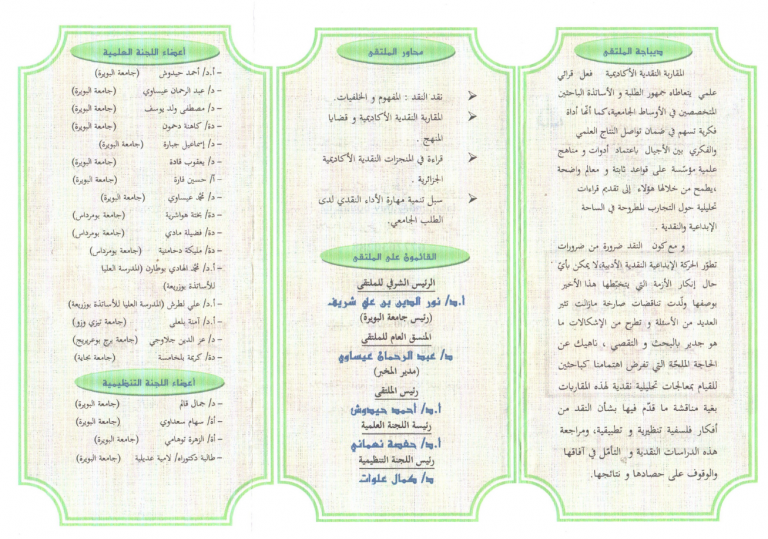 ديباجة الملتقى
المقاربة النقدية الأكاديمية فعل قرائي
علمي يتعاطاه جمهور الطلبة و الأساتذة الباحثين
المتخصصين في الأوساط الجامعية،كما أنّها أداة
فكرية تسهم في ضمان تواصل النتاج العلمي
والفكري بين الأجيال باعتماد أدوات و مناهج
علمية مؤسّسة على قواعد ثابتة و معالم واضحة
،يطمح من خلالها هؤلاء إلى تقديم قراءات
تحليلية حول التجارب المطروحة في الساحة
الإبداعية والنقدية .
و مع كون النقد ضرورة من ضرورات
تطوّر الحركة الإبداعية النقدية الأدبية،لا يمكن بأيّ
حال إنكار الأزمة التي يتخبّطها هذا الأخير
بوصفها ولّدت تناقضات صارخة مازالت تثير
العديد من الأسئلة و تطرح من الإشكالات ما
هو جدير بالبحث و التقصي ، ناهيك عن
الحاجة الملحّة التي تفرض اهتمامنا كباحثين
للقيام بمعالجات تحليلية نقدية لهذه المقاربات
بغية مناقشة ما قدّم فيها بشأن النقد من
أفكار فلسفية تنظيرية و تطبيقية، ومراجعة
هذه الدراسات النقدية و التأمّل في آفاقها
والوقوف على حصادها و نتائجها.
محاور الملتقى
➢ نقد النقد : المفهوم و الخلفيات.
➢ المقاربة النقدية الأكاديمية و قضايا
المنهج .
➢ قراءة في المنجزات النقدية الأكاديمية
الجزائرية .
➢ سبل تنمية مهارة الأداء النقدي لدى
الطلب الجامعي.
القائمون على الملتقى
الرئيس الشرفي للملتقى
أ.د/ نور الدين بن علي شريف
(رئيس جامعة البويرة)
المنسق العام للملتقى
د/ عبد الرحمان عيساوي
(مدير المخبر)
رئيس الملتقى
أ.د/ أحمد حيدوش
رئيسة اللجنة العلمية
أ.د/ حفصة نعماني
رئيس اللجنة التنظيمية
د/ كمال علوات
أعضاء اللجنة العلمية
– أ.د/ أحمد حيدوش (جامعة البويرة)
– د/ عبد الرحمان عيساوي (جامعة البويرة)
– د/ مصطفى ولد يوسف (جامعة البويرة)
– دة/ كاهنة دحمون (جامعة البويرة)
– د/ إسماعيل جبارة (جامعة البويرة)
– د/ يعقوب قادة (جامعة البويرة)
– أ/ حسين قارة (جامعة البويرة)
– د/ محمد عيساوي (جامعة البويرة)
– دة/ بختة هواشرية (جامعة بومرداس)
– دة/ فضيلة مادي (جامعة بومرداس)
– دة/ مليكة دحامنية (جامعة بومرداس)
– أ.د/ محمد الهادي بوطارن (المدرسة العليا
للأساتذة بوزريعة)
– أ.د/ علي لطرش (المدرسة العليا للأساتذة بوزريعة)
– أ.د/ آمنة بلعلى (جامعة تيزي وزو)
– د/ عز الدين جلاوجي (جامعة برج بوعريريج)
– دة/ كريمة بلخامسة (جامعة بجاية)
أعضاء اللجنة التنظيمية
– د/ جمال قالم (جامعة البويرة)
– أة/ سهام سعداوي (جامعة البويرة)
– أة/ الزهرة توهامي (جامعة البويرة)
– طالبة دكتوراه/ لامية عديلية (جامعة البويرة)